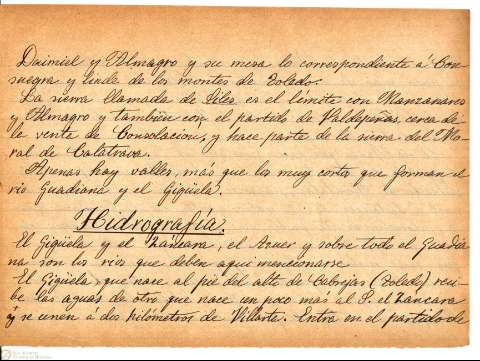 Daimiel y Almagro y su mesa lo correspondiente á Con-
suegra y linde de los montes de Toledo.
La sierra llamada de Siles es el límite con Manzanares
y Almagro y tambien con el partido de Valdepeñas, cerca de
la venta de Consolacion, y hace parte de la sierra del Mo-
ral de Calatrava.
Apenas hay valles, más que los muy cortos que forman el
rio Guadiana y el Gigüela.
Hidrografía.
El Gigüela y el Záncara, el Azuer y sobre todo el Guadia-
na son los rios que deben aqui mencionarse
El Gigüela, que nace al pié del alto de Cabrejas (Toledo) reci-
be las aguas de otro que nace un poco más al S. el Záncara
y se unen á dos kilómetros de Villarta. Entra en el partido de